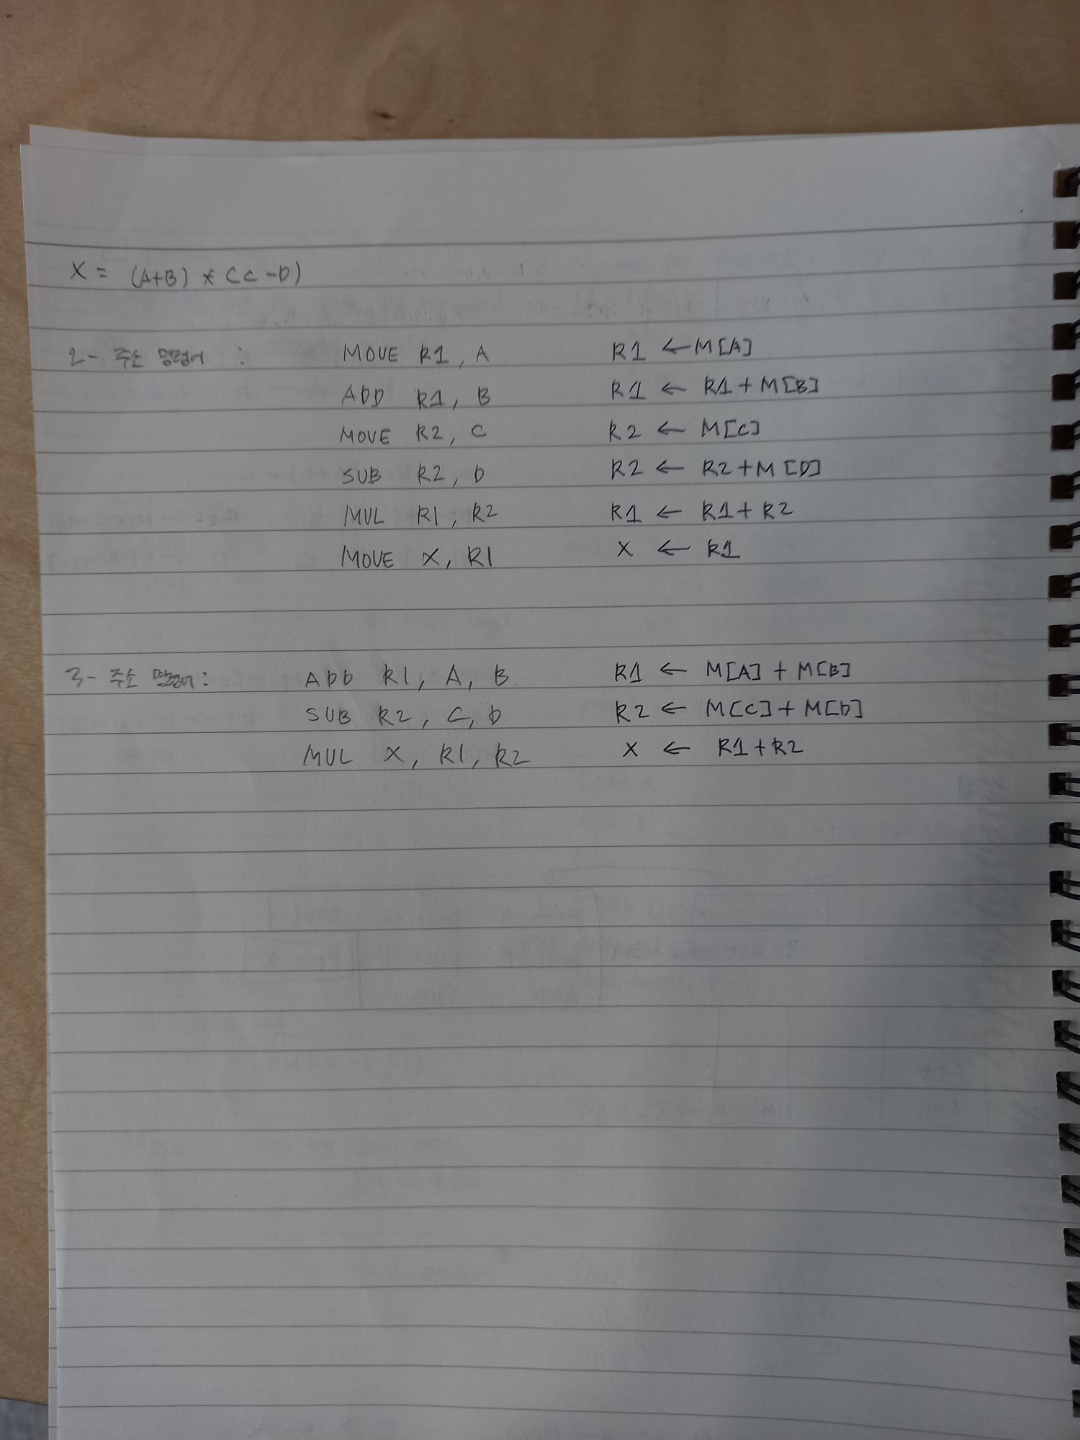 X = (A+B) * (C-D)
2- 주소 명령어 : MOVE R1, A R1 ← M[A]
ADD R1, B R1 ← R1 + M[B]
MOVE R2, C R2 ← M[C]
SUB R2, D R2 ← R2 + M[D]
MUL R1, R2 R1 ← R1 + R2
MOVE X, R1 X ← R1
3- 주소 명령어 : ADD R1, A, B R1 ← M[A] + M[B]
SUB R2, C, D R2 ← M[C] + M[D]
MUL X, R1, R2 X ← R1 + R2